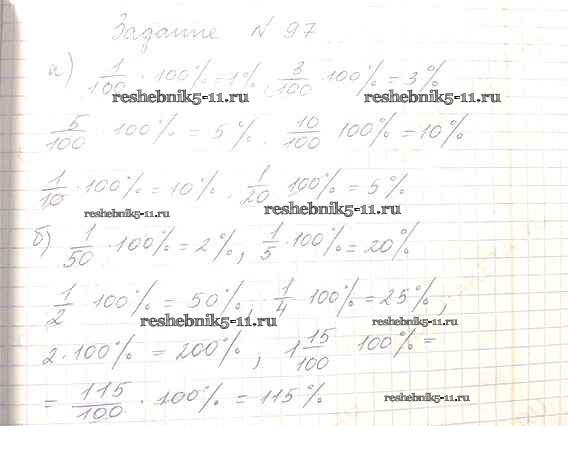 Задание № 97
а) 1/100 · 100% = 1%, 3/100 · 100% = 3%
reshebnik5-11.ru reshebnik5-11.ru
5/100 · 100% = 5%, 10/100 · 100% = 10%
1/10 · 100% = 10%, 1/20 · 100% = 5%
reshebnik5-11.ru reshebnik5-11.ru
б) 1/50 · 100% = 2%, 1/5 · 100% = 20%
1/2 · 100% = 50%, 1/4 · 100% = 25%;
reshebnik5-11.ru reshebnik5-11.ru
2 · 100% = 200%, 1 15/100 · 100% =
= 115/100 · 100% = 115%
reshebnik5-11.ru